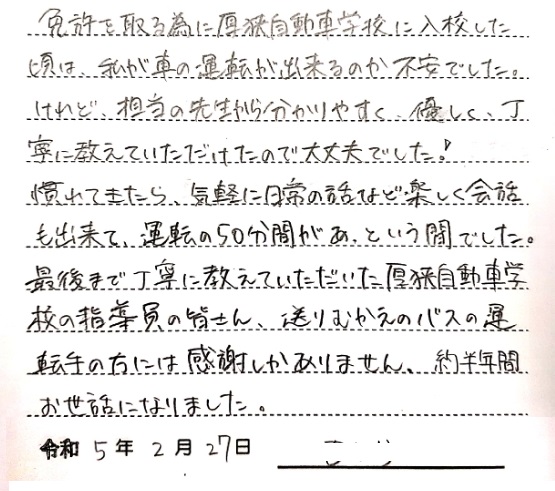 免許を取る為に厚狭自動車学校に入校した
頃は、私が車の運転が出来るのか不安でした。
けれど、担当の先生から分かりやすく、優しく、丁
寧に教えていただけたので大丈夫でした!
慣れてきたら、気軽に日常の話など楽しく会話
も出来て、運転の50分間があ、という間でした。
最後まで丁寧に教えていただいた厚狭自動車学
校の指導員の皆さん、送りむかえのバスの運
転手の方には感謝しかありません、約半年間
お世話になりました。
令和 5年 2月 27日